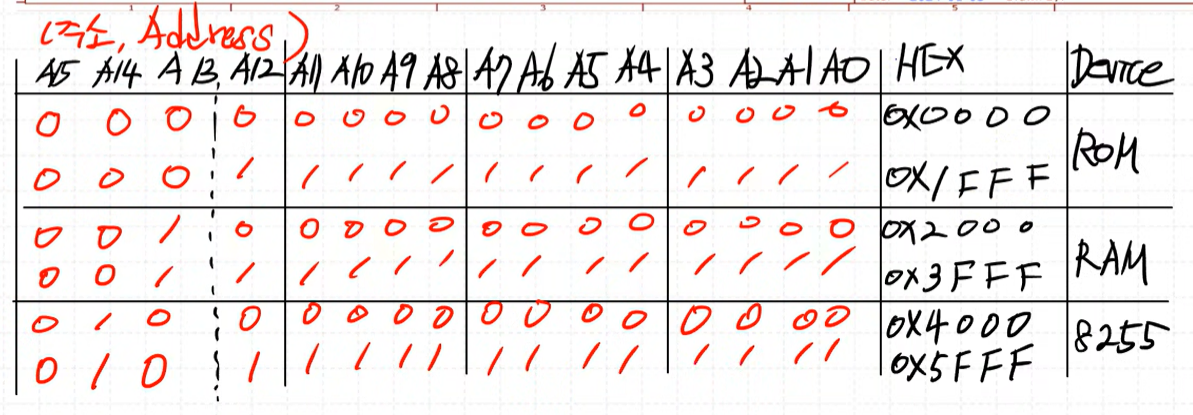 (주소, Address)
A15 A14 A13 A12 A11 A10 A9 A8 A7 A6 A5 A4 A3 A2 A1 A0 HEX Device
0 0 0 0 0 0 0 0 0 0 0 0 0 0 0 0 0X0000
ROM
0 0 0 1 1 1 1 1 1 1 1 1 1 1 1 1 0X1FFF
0 0 1 0 0 0 0 0 0 0 0 0 0 0 0 0 0X2000
RAM
0 0 1 1 1 1 1 1 1 1 1 1 1 1 1 1 0X3FFF
0 1 0 0 0 0 0 0 0 0 0 0 0 0 0 0 0X4000
8255
0 1 0 1 1 1 1 1 1 1 1 1 1 1 1 1 0X5FFF